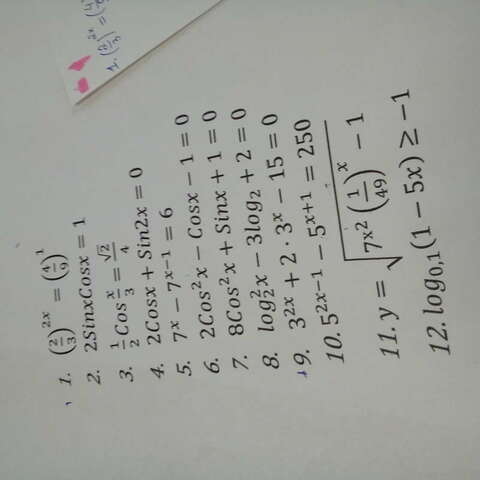 2. (2/3)^2x = (4
1. (2/3)^2x = (4/9)^1
2. 2SinxCosx = 1
3. 1/2 Cos x/3 = √2/4
4. 2Cosx + Sin2x = 0
5. 7^x − 7^x−1 = 6
6. 2Cos²x − Cosx − 1 = 0
7. 8Cos²x + Sinx + 1 = 0
8. log₂²x − 3log₂ + 2 = 0
9. 3^2x + 2 · 3^x − 15 = 0
10. 5^2x−1 − 5^x+1 = 250
11. y = √(7^x2 (1/49)^x − 1)
12. log₀,₁(1 − 5x) ≥ −1